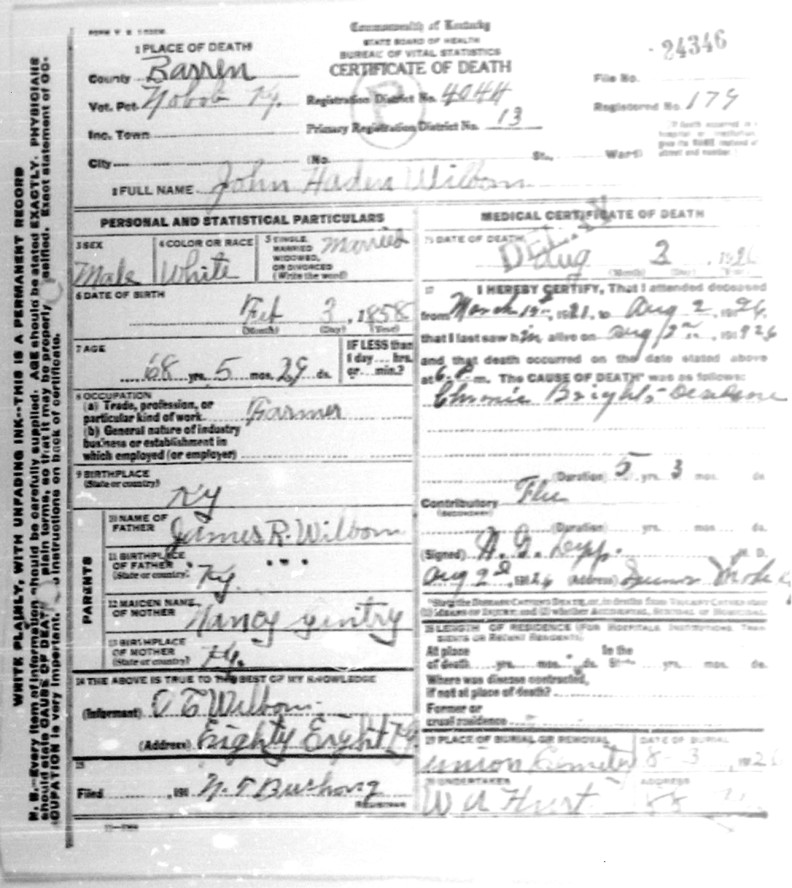 Commonwealth of Kentucky
STATE BOARD OF HEALTH
BUREAU OF VITAL STATISTICS
CERTIFICATE OF DEATH
24346
1 PLACE OF DEATH
County Barren
Vot. Pct. Nobob Ky.
Inc. Town
City (No. St., Ward)
Registration District No. 4044
Primary Registration District No. 13
File No.
Registered No. 179
2 FULL NAME John Haden Wilborn
PERSONAL AND STATISTICAL PARTICULARS
3 SEX Male
4 COLOR OR RACE White
5 SINGLE, MARRIED WIDOWED, OR DIVORCED (Write the word) Married
6 DATE OF BIRTH
Feb 3, 1858
(Month) (Day) (Year)
7 AGE
68 yrs. 5 mos. 29 ds.
IF LESS than
1 day hrs.
or min.?
8 OCCUPATION
(a) Trade, profession, or
particular kind of work. Farmer
(b) General nature of industry
business or establishment in
which employed (or employer)
9 BIRTHPLACE
(State or country)
Ky
PARENTS
10 NAME OF
FATHER James R. Wilborn
11 BIRTHPLACE
OF FATHER
(State or country) Ky.
12 MAIDEN NAME
OF MOTHER Nancy Gentry
13 BIRTHPLACE
OF MOTHER
(State or country) Ky.
14 THE ABOVE IS TRUE TO THE BEST OF MY KNOWLEDGE
(Informant) Wilborn
(Address) Eighty Eight Ky
15
Filed , 191
REGISTRAR
MEDICAL CERTIFICATE OF DEATH
DATE OF DEATH
Aug 2, 1926
(Month) (Day)
17 I HEREBY CERTIFY, That I attended deceased
from March 1921, to Aug 2, 1926
that I last saw him alive on Aug 2 1926
and that death occurred on the date stated above
at 6 P.m. The CAUSE OF DEATH was as follows:
Chronic Brights Disease
(Duration) 5 yrs. 3 mos. ds.
Contributory Flu
(SECONDARY)
(Duration) yrs. mos. ds.
(Signed) Depp. M. D.
Aug 2, 1926 (Address)
LENGTH OF RESIDENCE (FOR HOSPITALS, INSTITUTIONS, TRANSIENTS OR RECENT RESIDENTS)
At place In the
of death yrs. mos. ds. State yrs. mos. ds.
Where was disease contracted,
if not at place of death?
Former or
usual residence
19 PLACE OF BURIAL OR REMOVAL
Union
DATE OF BURIAL
8-3, 1926
20 UNDERTAKER
W A Hurt
ADDRESS
88
WRITE PLAINLY, WITH UNFADING INK--THIS IS A PERMANENT RECORD
N. B.--Every item of information should be carefully supplied. AGE should be stated EXACTLY. PHYSICIANS
should state CAUSE OF DEATH plain terms, so that it may be properly Exact statement of OC-
CUPATION is very important. instructions on back of certificate.